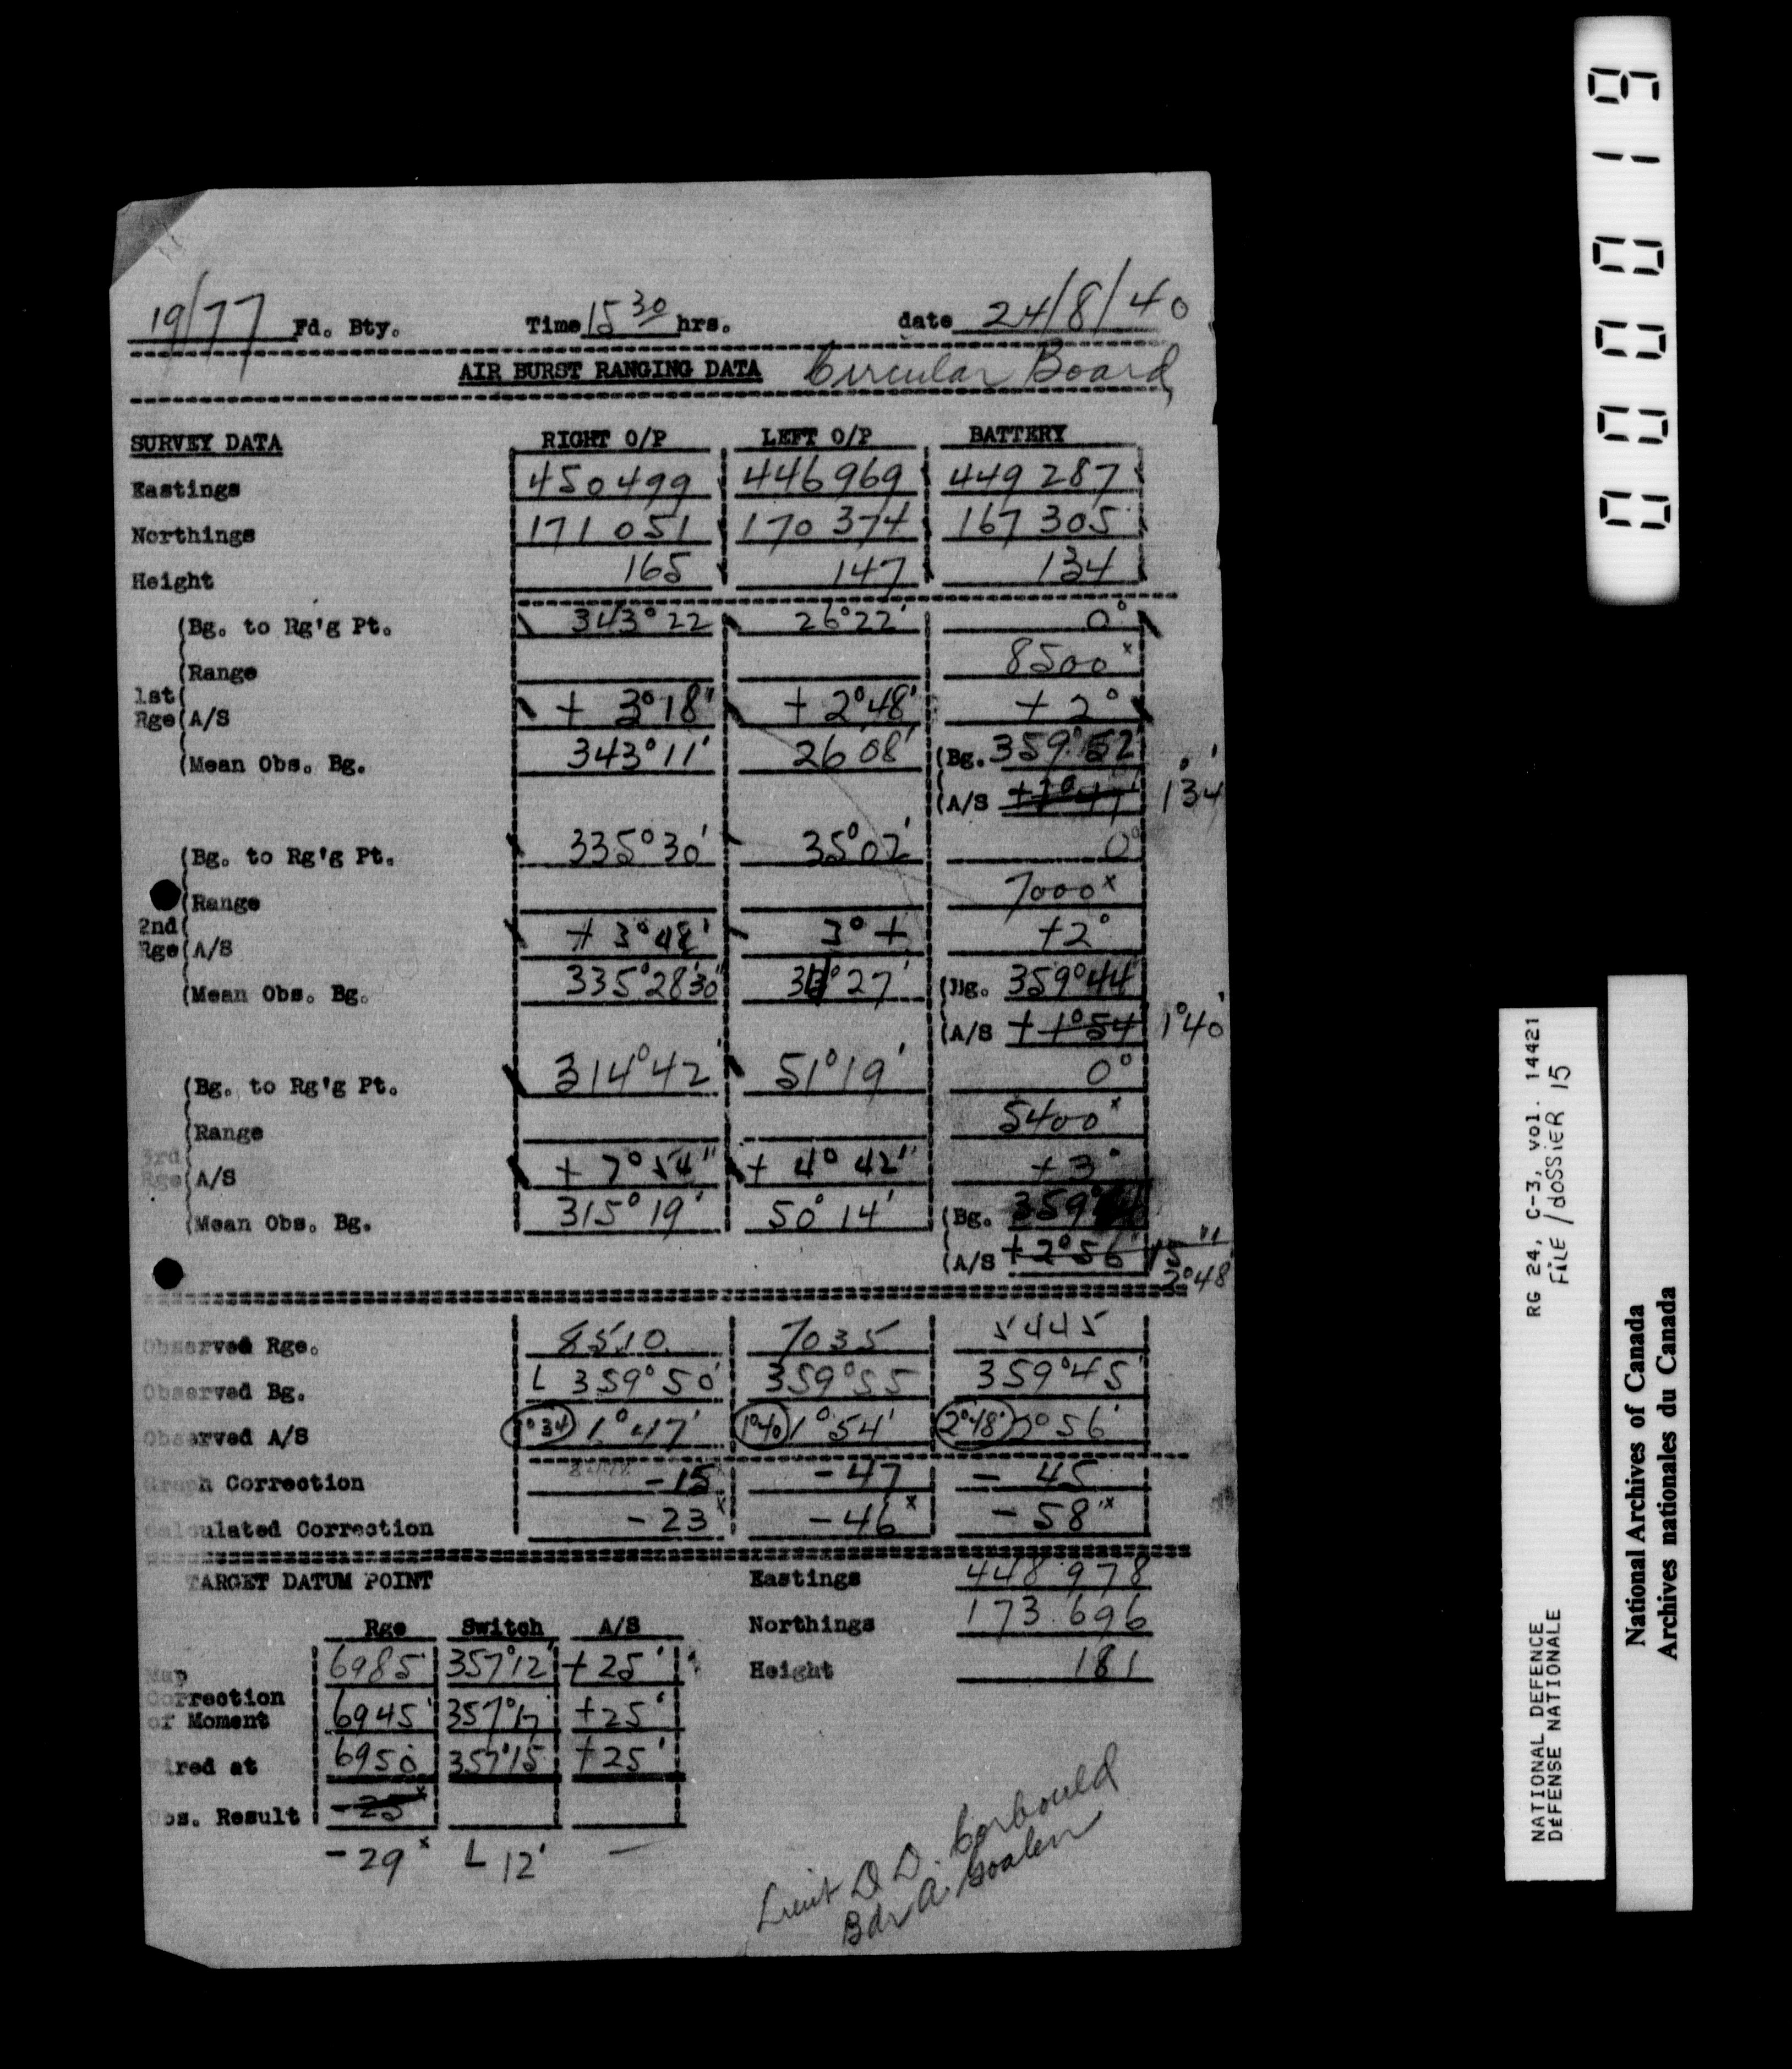 19/77 Fd. Bty. Time 15 30 hrs. date 24/8/40
AIR BURST RANGING DATA Circular Board
SURVEY DATA RIGHT O/P LEFT O/P BATTERY
Eastings 450499 446969 449287
Northings 171051 170374 167305
Height 165 147 134
(Bg. to Rg'g Pt. 343°22 26°22' 0°
(Range 8500x
1st
Rge (A/S + 3°18" + 2°48' + 2°
(Mean Obs. Bg. 343°11' 26 08' (Bg. 359°52'
(A/S +1°47' 1°34'
(Bg. to Rg'g Pt. 335°30' 35°02' 0°
(Range 7000x
2nd
Rge (A/S + 3°48' 3° + +2°
(Mean Obs. Bg. 335°28'30" 27' (Bg. 359°44'
(A/S + 1°54' 1°40'
(Bg. to Rg'g Pt. 314°42' 51°19' 0°
(Range 5400x
3rd
Rge (A/S + 7°54" + 4°42" + 3°
(Mean Obs. Bg. 315°19' 50°14' (Bg. 359°
(A/S + 2°56' 2°48'
Observed Rge. 8510 7035 5445
Observed Bg. L 359°50' 359°55 359°45'
Observed A/S 1°34 1°47' 1°40 1°54' 2°48' 2°56'
Graph Correction -15 -47 - 45
Calculated Correction -23x -46x -58x
TARGET DATUM POINT Eastings 448 978
Northings 173 696
Height 181
Rge Switch A/S
Map 6985 357°12' + 25'
Correction
of Moment 6945 357°17 +25'
Fired at 6950 357°15 +25'
Obs. Result -25x
-29x L 12' —
Lieut D. D. Corbould
Bdr A. Goalen
000019
RG 24, C-3, vol. 14421
FILE/dOSSIER 15
NATIONAL DEFENCE
DÉFENSE NATIONALE
National Archives of Canada
Archives nationales du Canada